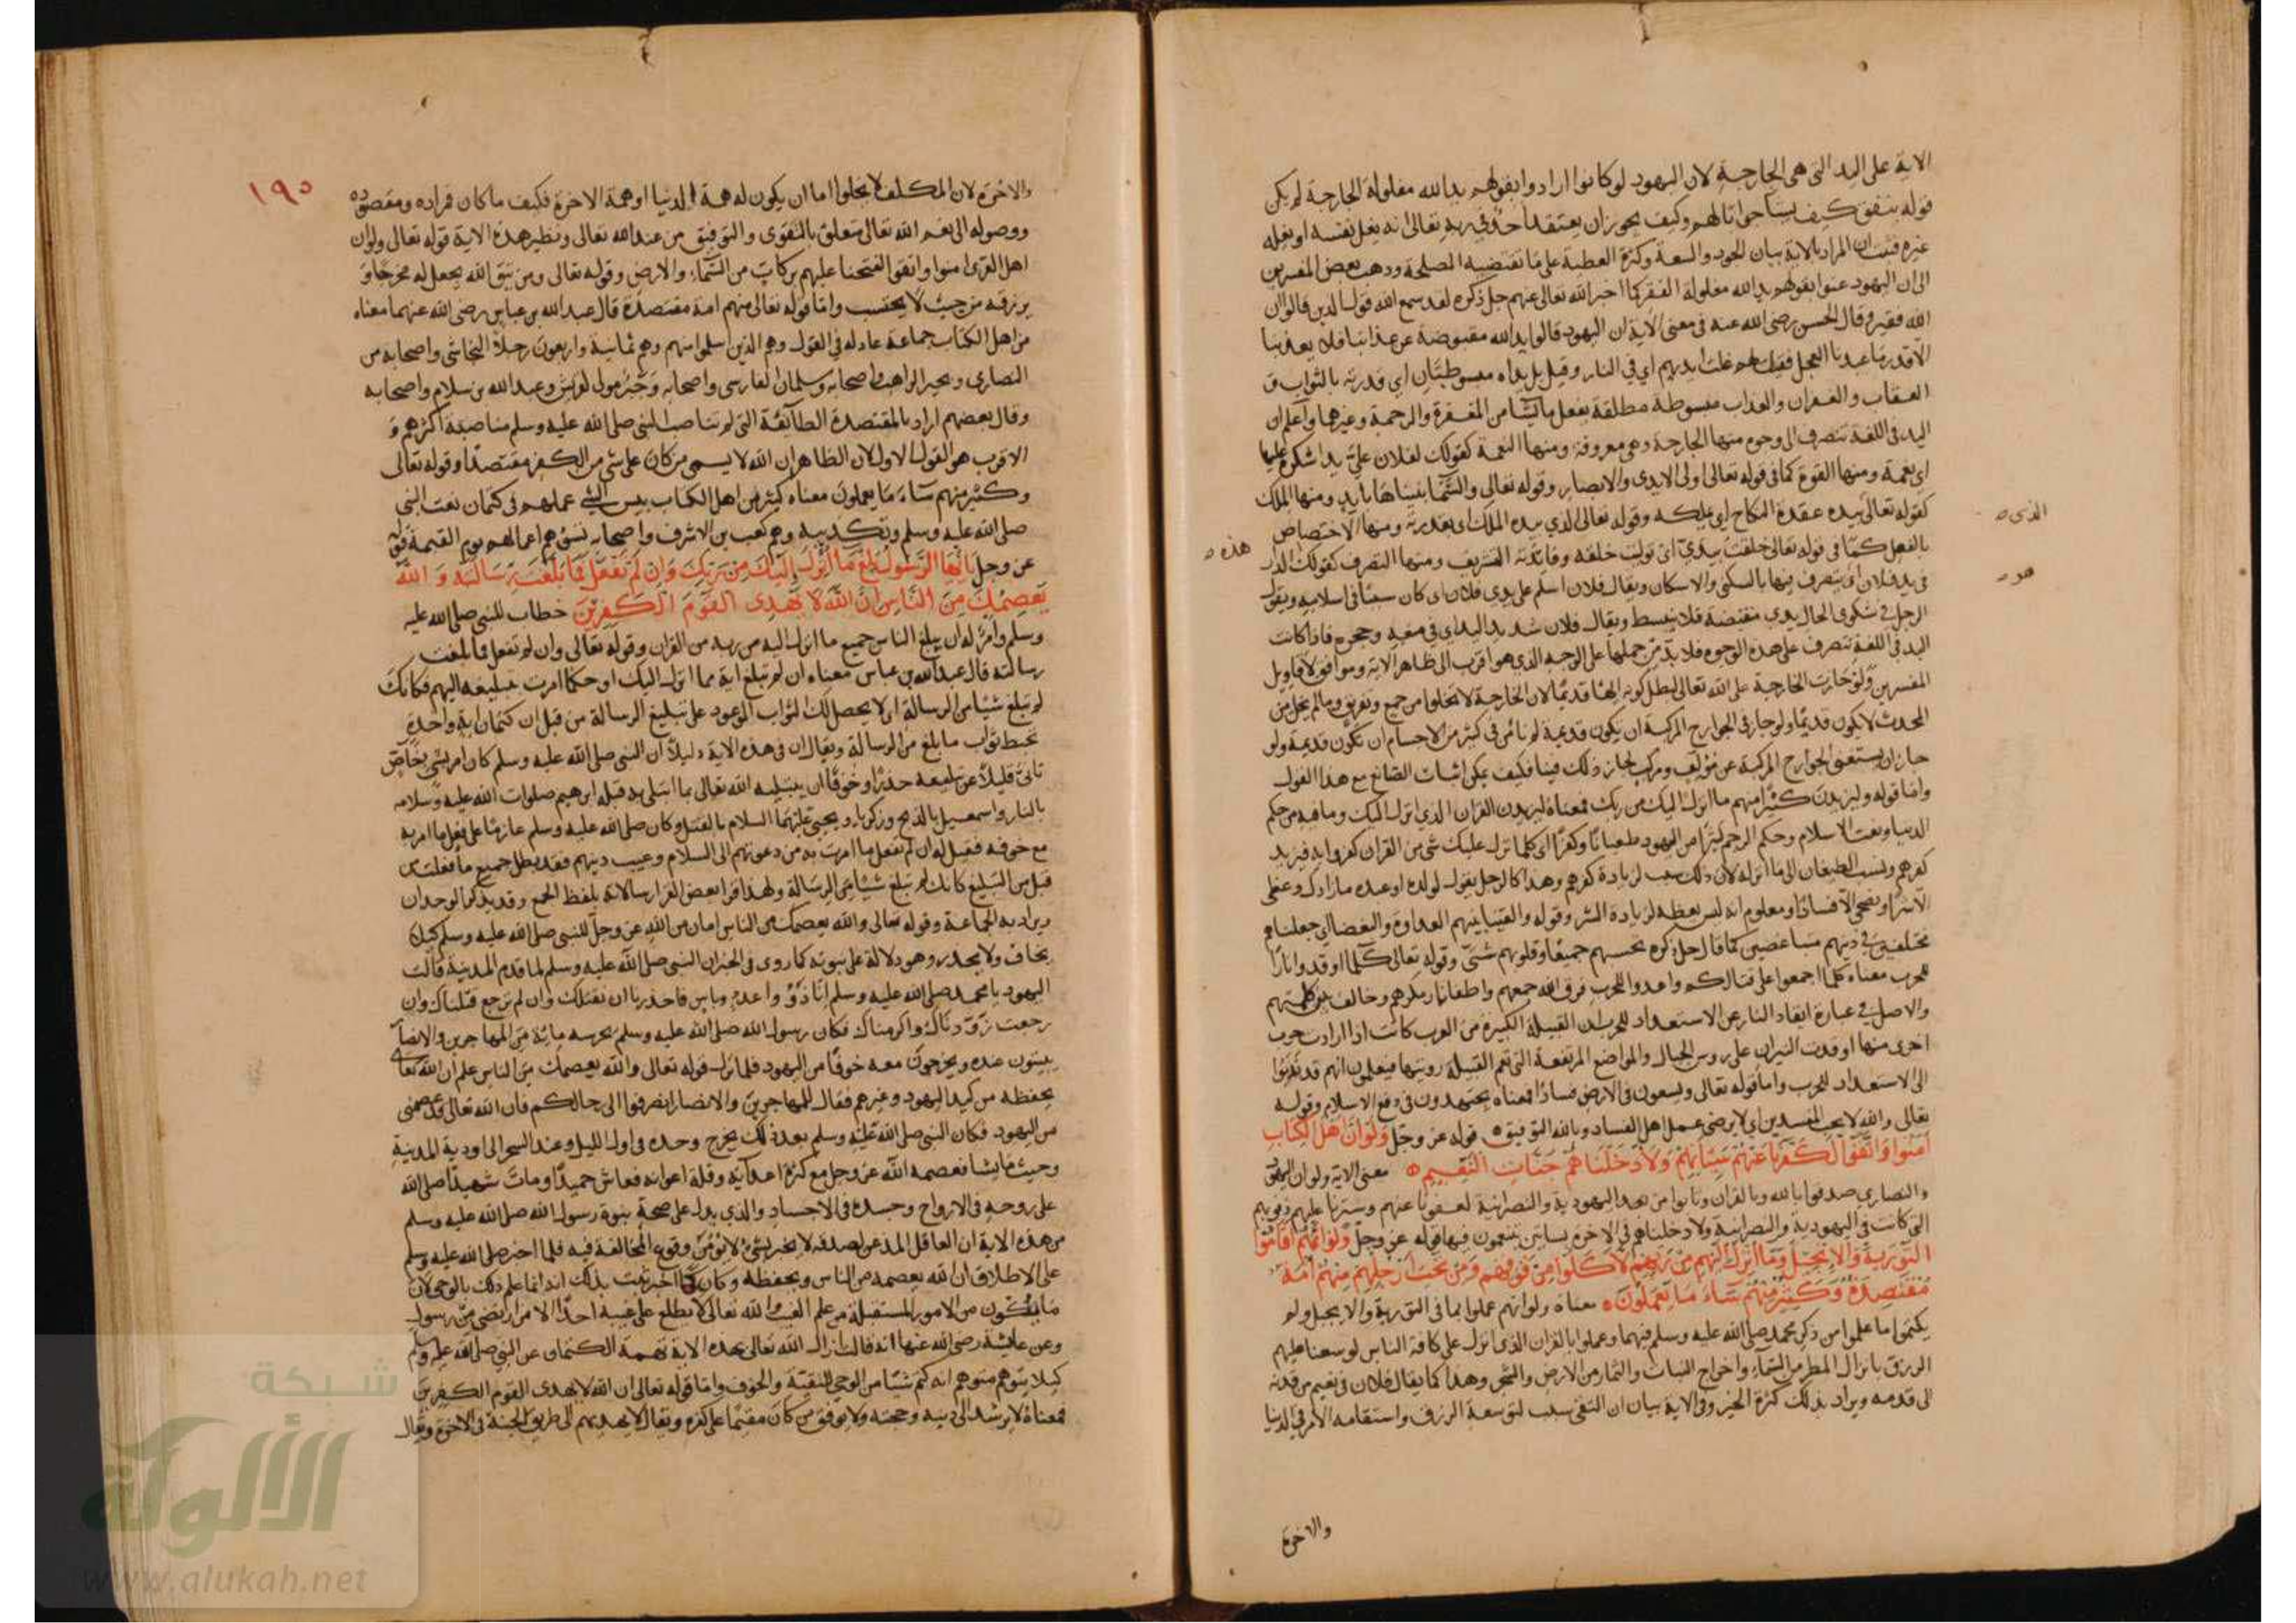 الاية على اليد التي هي الجارحة لان اليهود لو كانوا ارادوا بقولهم يد الله مغلولة الجارحة لم يكن
قوله ينفق كيف يشآ جوابا لهم وكيف يجوز ان يعتقد احد في ربه تعالى انه يغل نفسه او يغله
غيره فثبت ان المراد بالاية بيان الجود والسعة وكثرة العطية على ما تقتضيه المصلحة وذهب بعض المفسرين
الى ان اليهود عنوا بقولهم يد الله مغلولة الفقر كما اخبر الله تعالى عنهم جل ذكره لقد سمع الله قول الذين قالوا ان
الله فقير وقال الحسن رضي الله عنه في معنى الاية ان اليهود قالوا يد الله مقبوضة عن عذابنا فلا يعذبنا
الا قدر ما عبدنا العجل فقيل لهم غلت ايديهم اي في النار وقيل بل يداه مبسوطتان اي قدرته بالثواب و
العقاب والغفران والعذاب مبسوطة مطلقة يفعل ما يشآ من المغفرة والرحمة وغيرهما واعلم ان
اليد في اللغة تتصرف الى وجوه منها الجارحة وهي معروفة ومنها النعمة كقولك لفلان علي يد اشكره عليها
اي نعمة ومنها القوة كما في قوله تعالى اولي الايدي والابصار وقوله تعالى والسمآ بنيناها بايد ومنها الملك
كقوله تعالى بيده عقدة النكاح اي يملكه وقوله تعالى الذي بيده الملك اي بقدرته ومنها الاختصاص
الذي
بالفعل كما في قوله تعالى خلقت بيدي اي توليت خلقه وفائدته التشريف ومنها التصرف كقولك الدار
هذه
في يد فلان اي يتصرف فيها بالسكنى والاسكان ويقال فلان اسلم على يدي فلان اي كان سببا في اسلامه ويقول
هو
الرجل في شكوى الحال يدي منقبضة فلا تنبسط ويقال فلان شديد اليد اي في منعه وجحره فاذا كانت
اليد في اللغة تتصرف على هذه الوجوه فلا بد من حملها على الوجه الذي هو اقرب الى ظاهر الاية وموافق لاقاويل
المفسرين ولو جازت الجارحة على الله تعالى لبطل كونه الها قديما لان الجارحة لا تخلوا من جمع وتفريق وما لم يخل من
المحدث لا يكون قديما ولو جاز في الجوارح المركبة ان يكون قديمة لم نأمن في كثير من الاجسام ان تكون قديمة ولو
جاز ان يستغني الجوارح المركبة عن مؤلف ومركب لجاز ذلك فينا فكيف يمكن اثبات الصانع مع هذا القول
واما قوله وليزيدن كثيرا منهم ما انزل اليك من ربك فمعناه ليزيدن القران الذي انزل اليك وما فيه من حكم
الدنيا ونعت الاسلام وحكم الرجم كثيرا من اليهود طغيانا وكفرا اي كلما نزل عليك شئ من القران كفروا به فيزيد
كفرهم ونسب الطغيان الى ما انزله لان ذلك سبب لزيادة كفرهم وهذا كالرجل يقول لولده او عبده ما زادك وعظي
الا شرا ونصحي الا فسادا ومعلوم انه ليس يعظه لزيادة الشر وقوله والقينا بينهم العداوة والبغضا اي جعلناهم
مختلفين في دينهم متباغضين كما قال جل ذكره تحسبهم جميعا وقلوبهم شتى وقوله تعالى كلما اوقدوا نارا
للحرب معناه كلما اجمعوا على قتالكم واعدوا للحرب فرق الله جمعهم واطفا نار مكرهم وخالف بين كلمتهم
والاصل في عبارة ايقاد النار عن الاستعداد للحرب ان القبيلة الكبيرة من العرب كانت اذا ارادت حرب
اخرى منها اوقدت النيران على رؤس الجبال والمواضع المرتفعة التي تعم القبيلة رويتها فيعلمون انهم قد ندبوا
الى الاستعداد للحرب واما قوله تعالى ويسعون في الارض فسادا فمعناه يجتهدون في دفع الاسلام وقوله
تعالى والله لا يحب المفسدين اي لا يرضى عمل اهل الفساد وبالله التوفيق قوله عز وجل ولو ان اهل الكتاب
امنوا واتقوا لكفرنا عنهم سيئاتهم ولادخلناهم جنات النعيم معنى الاية ولو ان اليهود
والنصارى صدقوا بالله وبالقران وتابوا من بعد اليهودية والنصرانية لعفونا عنهم وسترنا عليهم ذنوبهم
التي كانت في اليهودية والنصرانية ولادخلناهم في الاخرة بساتين يتنعمون فيها قوله عز وجل ولو انهم اقاموا
التورية والانجيل وما انزل اليهم من ربهم لاكلوا من فوقهم ومن تحت ارجلهم منهم امة
مقتصدة وكثير منهم سآء ما يعملون معناه ولو انهم عملوا بما في التورية والانجيل ولم
يكتموا ما علموا من ذكر محمد صلى الله عليه وسلم فيهما وعملوا بالقران الذي انزل على كافة الناس لوسعنا عليهم
الرزق بانزال المطر من السمآء واخراج النبات والثمار من الارض والشجر وهذا كما يقال فلان في نعيم من قرنه
الى قدمه ويراد بذلك كثرة الخير وفي الاية بيان ان التقى سبب لتوسعة الرزق واستقامة الامر في الدنيا
والاخرة
١٩٥
والاخرة لان المكلف لا يخلوا اما ان يكون له همة الدنيا او همة الاخرة فكيف ما كان فمراده ومقصوده
ووصوله الى نعم الله تعالى متعلق بالتقوى والتوفيق من عند الله تعالى ونظير هذه الاية قوله تعالى ولو ان
اهل القرى امنوا واتقوا لفتحنا عليهم بركات من السمآء والارض وقوله تعالى ومن يتق الله يجعل له مخرجا و
يرزقه من حيث لا يحتسب واما قوله تعالى منهم امة مقتصدة قال عبد الله بن عباس رضي الله عنهما معناه
من اهل الكتاب جماعة عادلة في القول وهم الذين اسلموا منهم وهم ثمانية واربعون رجلا النجاشي واصحابه من
النصارى وبحير الراهب واصحابه وسلمان الفارسي واصحابه وجبر مولى لقريش وعبد الله بن سلام واصحابه
وقال بعضهم اراد بالمقتصدة الطائفة التي لم تناصب النبي صلى الله عليه وسلم مناصبة اكثرهم و
الاقرب هو القول الاول لان الظاهر ان الله لا يسمي من كان على شئ من الكفر مقتصدا وقوله تعالى
وكثير منهم سآء ما يعملون معناه كثير من اهل الكتاب بئس الشئ عملهم في كتمان نعت النبي
صلى الله عليه وسلم وتكذيبه وهم كعب بن الاشرف واصحابه تسؤهم اعمالهم يوم القيمة قوله
عز وجل يا ايها الرسول بلغ ما انزل اليك من ربك وان لم تفعل فما بلغت رسالته والله
يعصمك من الناس ان الله لا يهدي القوم الكفرين خطاب للنبي صلى الله عليه
وسلم وامر له ان يبلغ الناس جميع ما انزل اليه من ربه من القران وقوله تعالى وان لم تفعل فما بلغت
رسالته قال عبد الله بن عباس معناه ان لم تبلغ اية مما انزل اليك او حكما امرت بتبليغه اليهم فكانك
لم تبلغ شيئا من الرسالة اي لا يحصل لك الثواب الموعود على تبليغ الرسالة من قبل ان كتمان اية واحدة
تحبط ثواب ما بلغ من الرسالة ويقال ان في هذه الاية دليلا ان النبي صلى الله عليه وسلم كان امر بشئ خاص
تانى قليلا عن تبليغه حذرا وخوفا ان يبتليه الله تعالى بما ابتلى به قبله ابرهيم صلوات الله عليه وسلامه
بالنار واسمعيل بالذبح وزكريا ويحيى عليهما السلام بالقتل وكان صلى الله عليه وسلم عازما على فعل ما امر به
مع خوفه فقيل له ان لم تفعل ما امرت به من دعوتهم الى السلام وعيب دينهم فقد بطل جميع ما فعلت من
قبل من التبليغ كانك لم تبلغ شيئا من الرسالة ولهذا قرا بعض القرا رسالاته بلفظ الجمع وقد يذكر الوحدان
ويراد به الجماعة وقوله تعالى والله يعصمك من الناس امان من الله عز وجل للنبي صلى الله عليه وسلم كيلا
يخاف ولا يحذر وهو دلالة على نبوته كما روي في الخبر ان النبي صلى الله عليه وسلم لما قدم المدينة قالت
اليهود يا محمد صلى الله عليه وسلم انا ذوو عدد وباس فاحذرنا ان نقتلك وان لم ترجع قتلناك وان
رجعت زودناك واكرمناك فكان رسول الله صلى الله عليه وسلم يحرسه مائة من المهاجرين والانصار
يبيتون عنده ويخرجون معه خوفا من اليهود فلما نزل قوله تعالى والله يعصمك من الناس علم ان الله تعالى
يحفظه من كيد اليهود وغيرهم فقال للمهاجرين والانصار انصرفوا الى رحالكم فان الله تعالى قد عصمني
من اليهود فكان النبي صلى الله عليه وسلم بعد ذلك يخرج وحده في اول الليل وعند السحر الى اودية المدينة
وحيث ما يشا فعصمه الله عز وجل مع كثرة اعدآئه وقلة اعوانه فعاش حميدا ومات شهيدا صلى الله
على روحه في الارواح وجسده في الاجساد والذي يدل على صحة نبوة رسول الله صلى الله عليه وسلم
من هذه الاية ان العاقل المدعي لصدقه لا يخبر بشئ لا يؤمن وقوع المخالفة فيه فلما اخبر صلى الله عليه وسلم
على الاطلاق ان الله يعصمه من الناس ويحفظه وكان كما اخبر ثبت بذلك انه انما علم ذلك بالوحي لان
ما يكون من الامور المستقبلة من علم الغيب والله تعالى لا يطلع على غيبه احدا الا من ارتضى من رسول
وعن عائشة رضي الله عنها انه قالت ازال الله تعالى بهذه الاية تهمة الكتمان عن النبي صلى الله عليه وسلم
كيلا يتوهم متوهم انه كتم شيئا من الوحي للتقية والخوف واما قوله تعالى ان الله لا يهدي القوم الكفرين
فمعناه لا يرشد الى دينه وحجته ولا يوفق من كان مقيما على كفره ويقال لا يهديهم الى طريق الجنة في الاخرة ويقال
شبكة
الألوكة
www.alukah.net